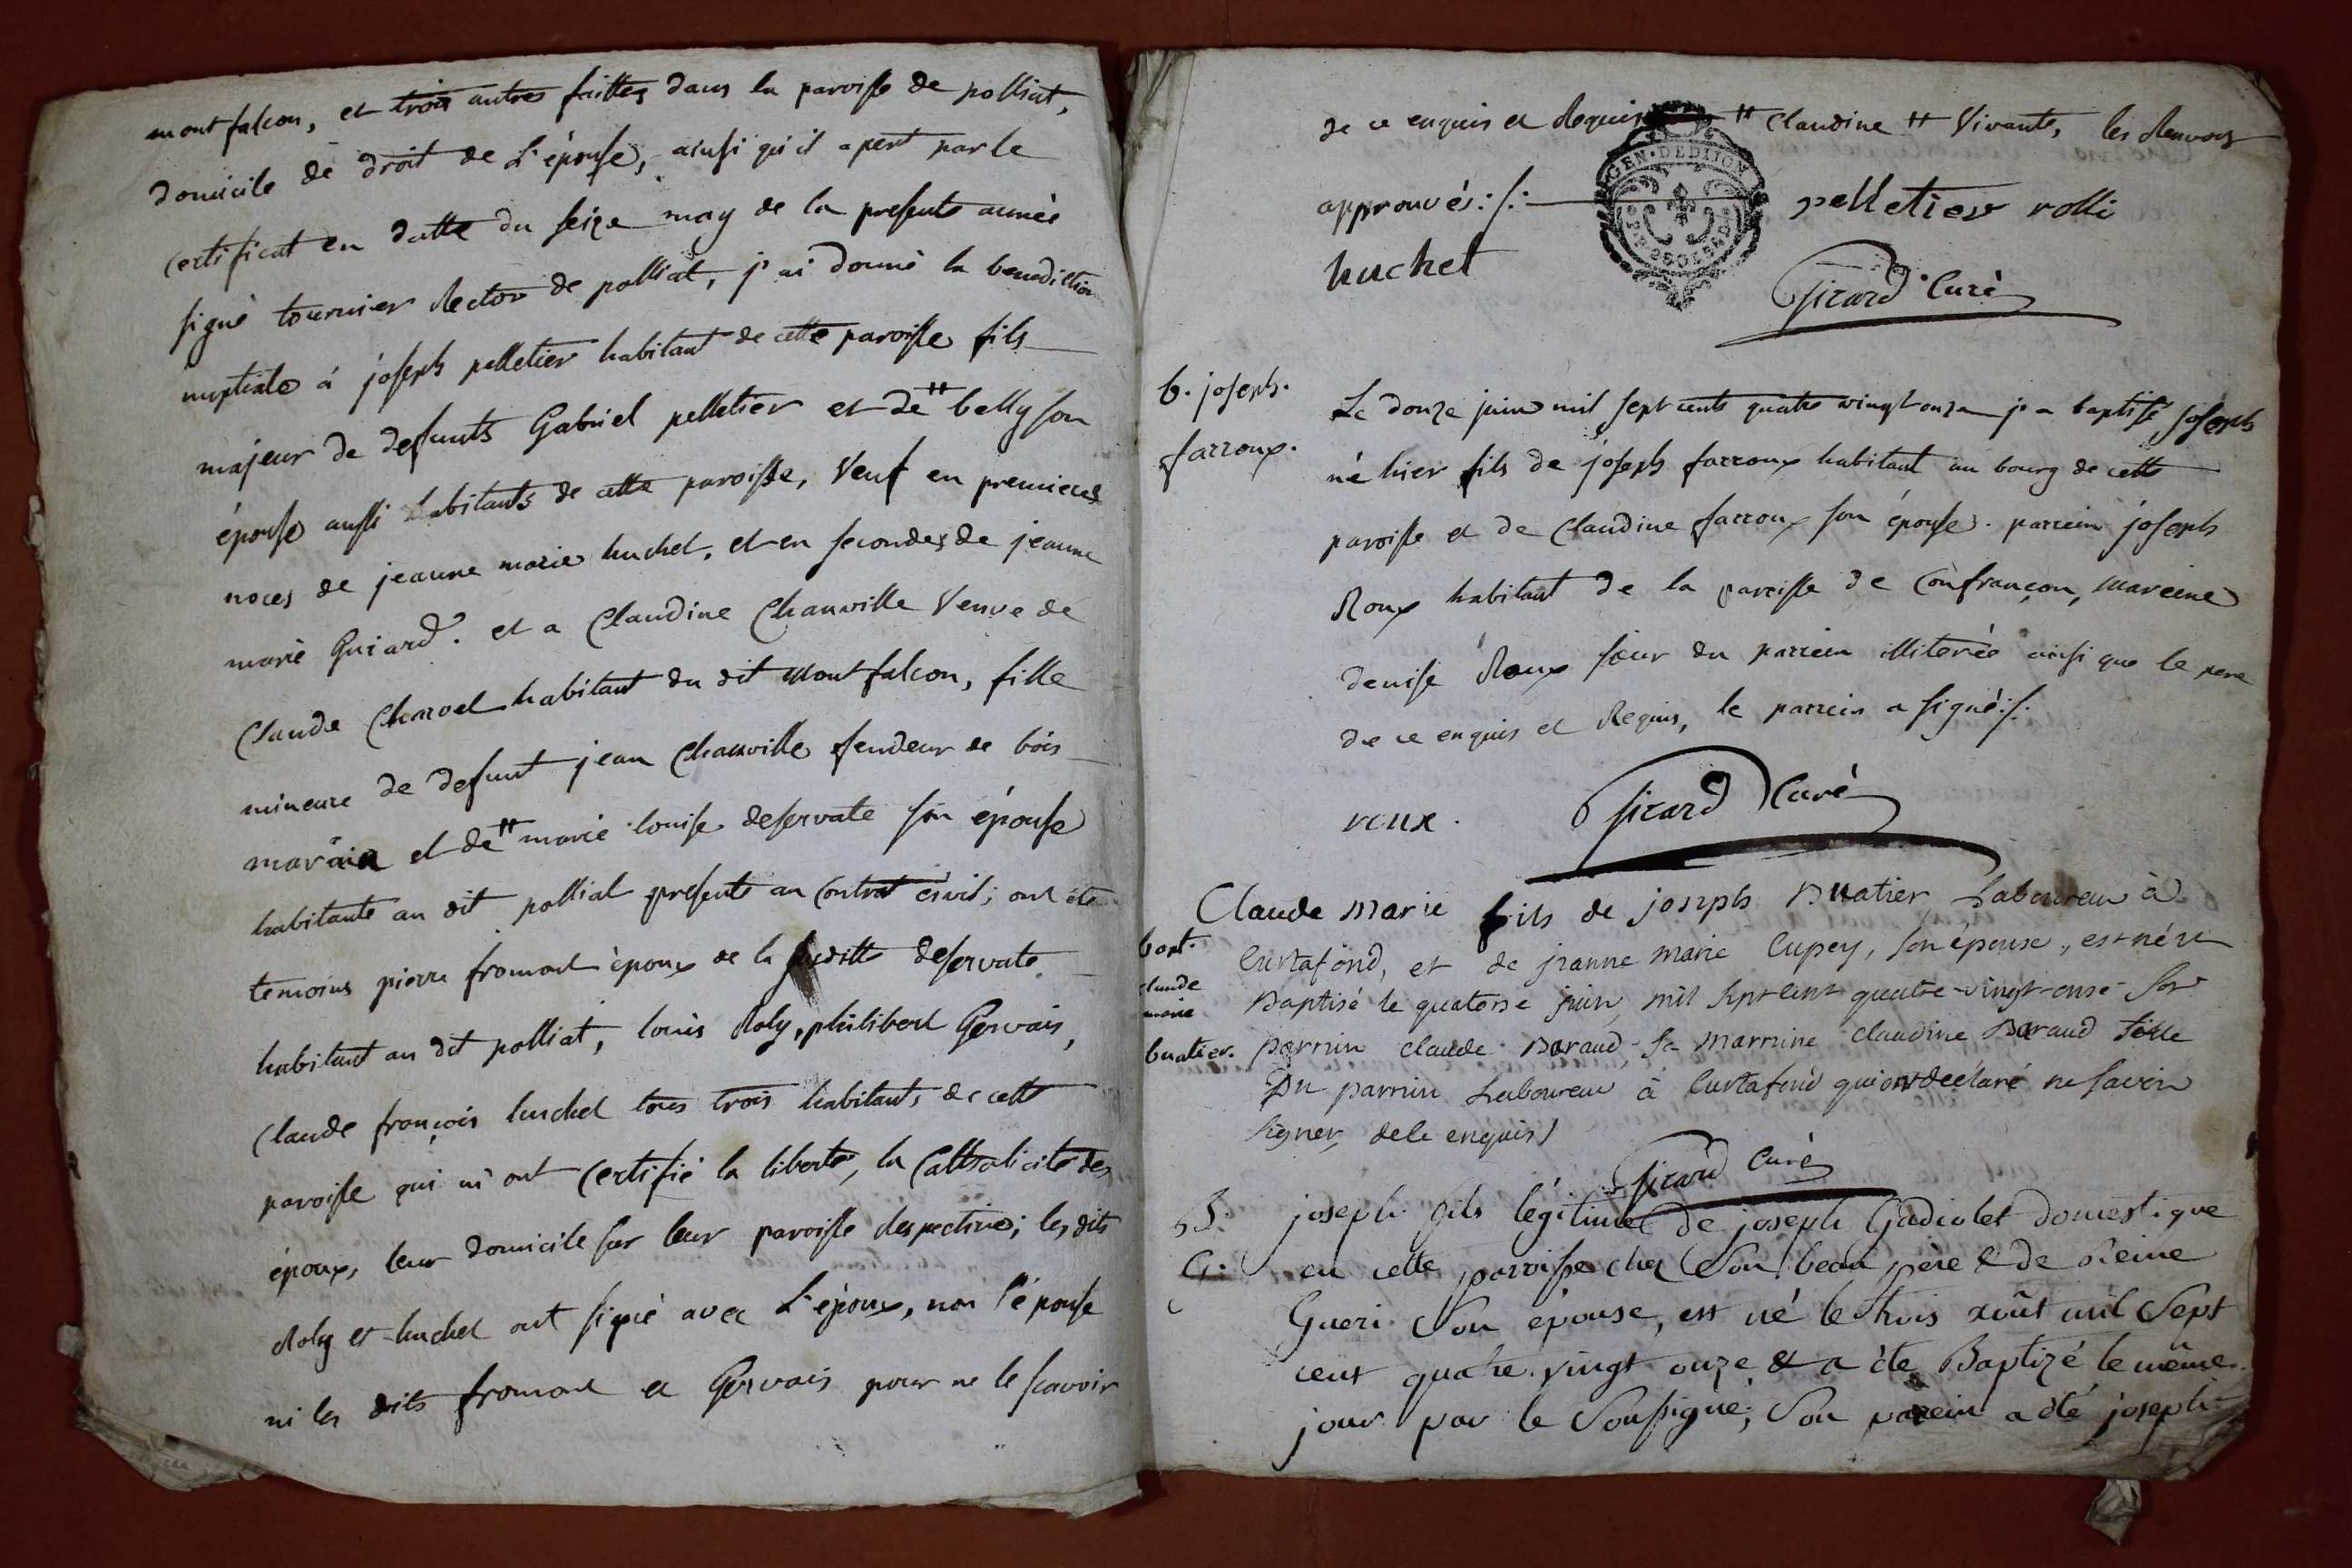 montfalcon, et trois autres faittes dans la paroisse de polliat,
domicile de droit de L'épouse, ainsi qu'il apert par le
Certificat en datte du seize may de la presente année
signé tournier Rector de polliat, j'ai donné la benediction
nuptiale à joseph pelletier habitant de cette paroisse fils
majeur de defunts Gabriel pelletier et de # belly son
épouse aussi habitants de cette paroisse, Veuf en premieres
noces de jeanne marie huchet, et en secondes de jeanne
marie Guiard. et a Claudine Chanville Veuve de
Claude Charvel habitant du dit Montfalcon, fille
mineure de defunt jean Chanville fendeur de bois
et de # marie louise deservate son épouse
habitante au dit polliat presente au Contrat civil; ont été
temoins pierre fromont époux de la susditte deservate
habitant au dit polliat, louis Roly, philibert Gervais,
Claude françois huchet tous trois habitants de cette
paroisse qui m'ont Certifié la liberté, la Catholicité des
époux, leur domicile sur leur paroisse respective; les dits
Roly et huchet ont signé avec L'époux, non l'épouse
ni les dits fromont et Gervais pour ne le scavoir
de ce enquis et Requis # Claudine # Vivante, les Renvois
approuvés ./. pelletier rolli
GEN. DE DIJON
huchet
Girard Curé
b. joseph
farroux.
Le douze juin mil sept cents quatre vingt onze j'a baptisé joseph
né hier fils de joseph farroux habitant au bourg de cette
paroisse et de Claudine farroux son épouse. parrein joseph
Roux habitant de la paroisse de Confrançon, mareine
denise Roux sœur du parrein illiterée ainsi que le pere
de ce enquis et Requis, le parrein a signé ./.
roux. Girard Curé
bapt.
claude
marie
buatier.
Claude Marie fils de joseph Buatier Laboureur à
Curtafond, et de jeanne marie Cupey, son épouse, est né et
Baptisé le quatorse juin mil sept cent quatre-vingt-onse Son
parrin claude Baraud, sa marrine claudine Baraud fille
Du parrin Laboureur à Curtafond qui ont declaré ne savoir
signer, de le enquis
Girard Curé
B.
G.
joseph fils légitime de joseph Gadiolet domestique
en cette paroisse chez Son beau père & de reine
Gueri Son épouse, est né le trois août mil Sept
cent quatre vingt onze & a été Baptizé le même
jour par le Soussigné; Son parein a été joseph